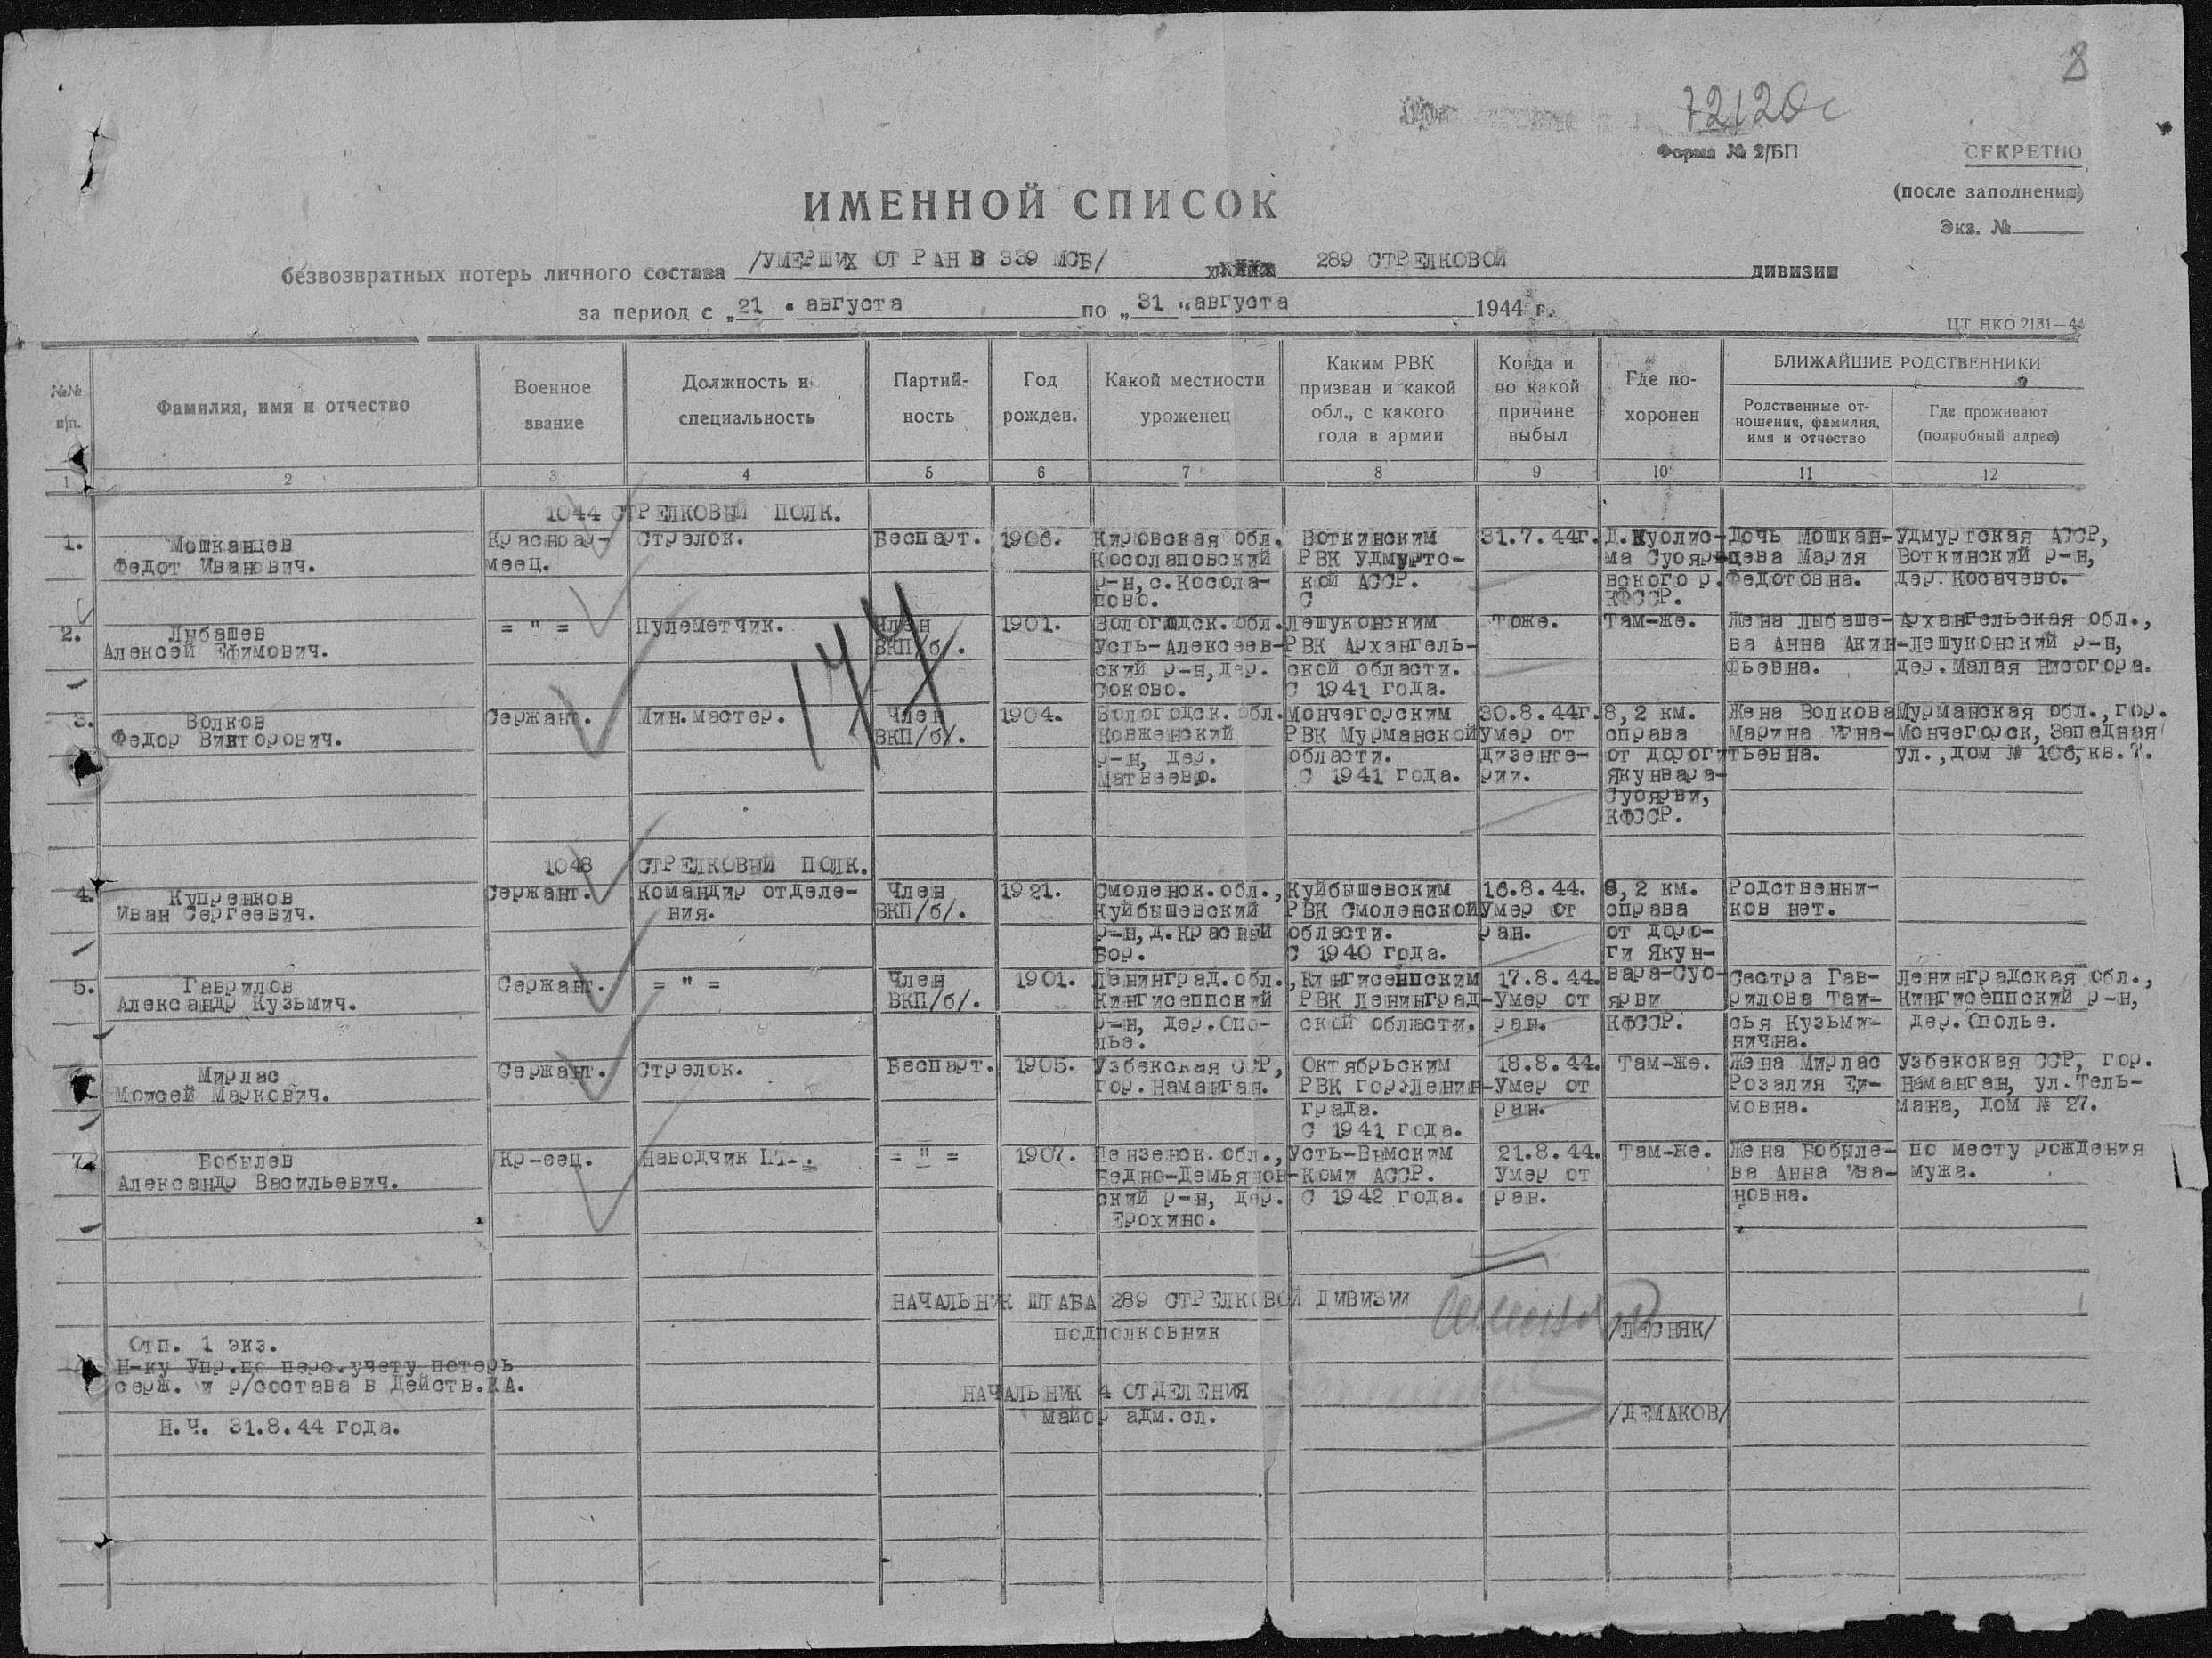 8
72120с
Форма № 2/БП
СЕКРЕТНО
(после заполнения)
Экз. №
ИМЕННОЙ СПИСОК
безвозвратных потерь личного состава /УМЕРШИХ ОТ РАН В 339 МСБ/ 289 СТРЕЛКОВОЙ дивизии
за период с „21“ августа по „31“ августа 1944 г.
ЦТ НКО 2181—44
№№ п/п.
Фамилия, имя и отчество
Военное звание
Должность и специальность
Партийность
Год рожден.
Какой местности уроженец
Каким РВК призван и какой обл., с какого года в армии
Когда и по какой причине выбыл
Где похоронен
БЛИЖАЙШИЕ РОДСТВЕННИКИ
Родственные отношения, фамилия, имя и отчество
Где проживают (подробный адрес)
1 2 3 4 5 6 7 8 9 10 11 12
1044 СТРЕЛКОВЫЙ ПОЛК.
1. Мошканцев Красноар- Стрелок. Беспарт. 1906. Кировская обл. Воткинским 31.7.44г. Д.Куолис- Дочь Мошкан- Удмуртская АССР,
Федот Иванович. меец. Косолаповский РВК Удмуртс- ма Суоярв- цева Мария Воткинский р-н,
р-н, с.Косола- кой АССР. ского р. Федотовна. дер.Косачево.
пово. С КФССР.
2. Лыбашев = " = Пулеметчик. Член 1901. Вологодск.обл. Лешуконским Тоже. Там-же. Жена Лыбаше- Архангельская обл.,
Алексей Ефимович. ВКП/б/. Усть-Алексеев- РВК Архангель- ва Анна Акин- Лешуконский р-н,
ский р-н, дер. ской области. фьевна. дер.Малая Нисогора.
Соково. С 1941 года.
144
3. Волков Сержант. Мин.мастер. Член 1904. Вологодск.обл. Мончегорским 30.8.44г. 8,2 км. Жена Волкова Мурманская обл., гор.
Федор Викторович. ВКП/б/. Ковженский РВК Мурманской Умер от справа Марина Игна- Мончегорск, Западная
р-н, дер. области. дизенте- от дороги тьевна. ул., дом № 106, кв.7.
Матвеево. С 1941 года. рии. Якунвара-
Суоярви,
КФССР.
1048 СТРЕЛКОВЫЙ ПОЛК.
4. Купренков Сержант. Командир отделе- Член 1921. Смоленск.обл., Куйбышевским 16.8.44. 8,2 км. Родственни-
Иван Сергеевич. ния. ВКП/б/. Куйбышевский РВК Смоленской Умер от справа ков нет.
р-н, д.Красный области. ран. от доро-
Бор. С 1940 года. ги Якун-
5. Гаврилов Сержант. = " = Член 1901. Ленинград.обл., Кингисеппским 17.8.44. вара-Суо- Сестра Гав- Ленинградская обл.,
Александр Кузьмич. ВКП/б/. Кингисеппский РВК Ленинград- Умер от ярви рилова Таи- Кингисеппский р-н,
р-н, дер.Опо- ской области. ран. КФССР. сья Кузьми- дер.Ополье.
лье. нична.
Мирлас Сержант. Стрелок. Беспарт. 1905. Узбекская ССР, Октябрьским 18.8.44. Там-же. Жена Мирлас Узбекская ССР, гор.
Моисей Маркович. гор.Наманган. РВК гор.Ленин- Умер от Розалия Еи- Наманган, ул.Тель-
града. ран. мовна. мана, дом № 27.
С 1941 года.
7. Бобылев Кр-еец. Наводчик = " = 1907. Пензенск.обл., Усть-Вымским 21.8.44. Там-же. Жена Бобыле- по месту рождения
Александр Васильевич. Бедно-Демьянов- Коми АССР. Умер от ва Анна Ива- мужа.
ский р-н, дер. С 1942 года. ран. новна.
Ерохино.
НАЧАЛЬНИК ШТАБА 289 СТРЕЛКОВОЙ ДИВИЗИИ
подполковник /ЛЕСНЯК/
Отп. 1 экз.
Н-ку Упр.по перс.учету потерь
серж. и р/состава в Действ.КА.
НАЧАЛЬНИК 4 ОТДЕЛЕНИЯ
майор адм.сл. /ДЕМАКОВ/
Н.Ч. 31.8.44 года.